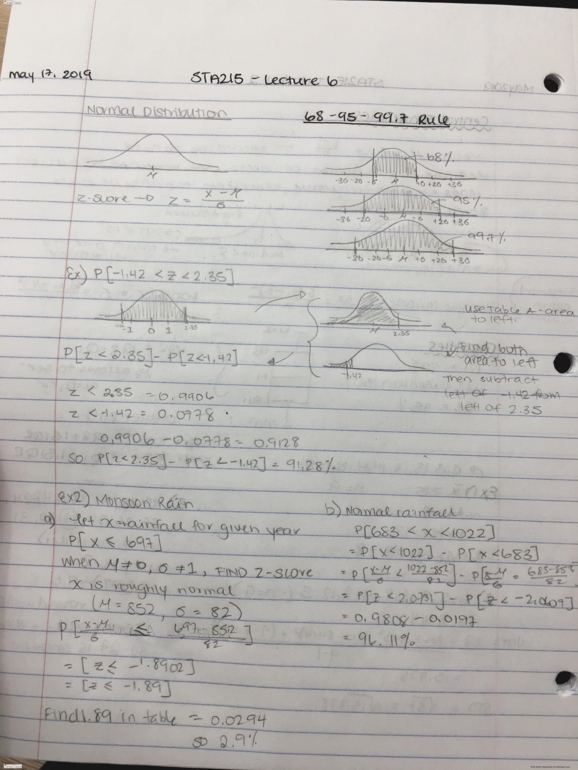 may 17, 2019
STA215 - Lecture 6
Normal Distribution
68-95-99.7 Rule
68%
-3σ -2σ -σ μ σ +2σ +3σ
95%
-3σ -2σ -σ μ +σ +2σ +3σ
99.7%
-3σ -2σ -σ μ +σ +2σ +3σ
μ
z-score → z = x-μ/σ
Ex) P[-1.42 < z < 2.35]
-1 0 1 2.35
μ 2.35
use Table A - area
to left.
P[z < 2.35] - P[z < 1.42]
-1.42
Find both
area to left
then subtract
left of -1.42 from
left of 2.35
z < 235 = 0.9906
z < -1.42 = 0.0778
0.9906 - 0.0778 = 0.9128
so P[z < 2.35] - P[z < -1.42] = 91.28%
Ex2) Monsoon Rain
a) let x = rainfall for given year
P[x ≤ 697]
when μ ≠ 0, σ ≠ 1, FIND z-score
x is roughly normal
(μ = 852, σ = 82)
P[x-μ/σ ≤ 697-852/82]
= [z ≤ -1.8902]
= [z ≤ -1.89]
Find 1.89 in table = 0.0294
so 2.9%
b) Normal rainfall
P[683 < x < 1022]
= P[x < 1022] - P[x < 683]
= P[x-μ/σ < 1022-852/82] - P[x-μ/σ = 683-852/82]
= P[z < 2.0731] - P[z < -2.0609]
= 0.9808 - 0.0197
= 96.11%